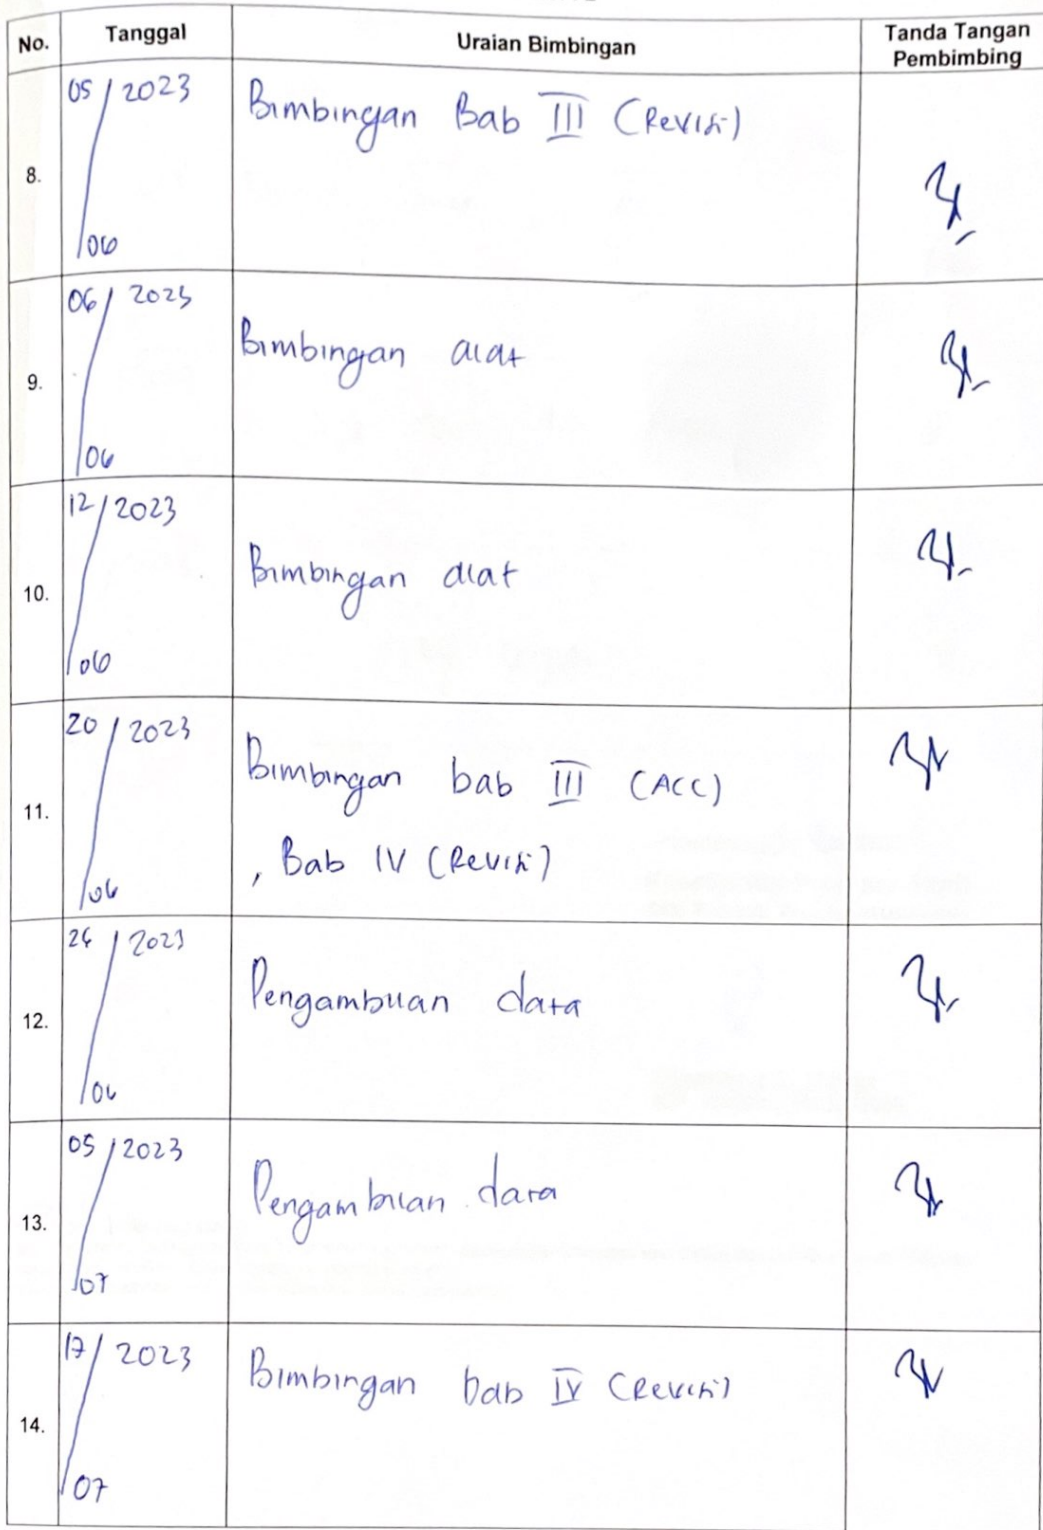 No. Tanggal Uraian Bimbingan Tanda Tangan
Pembimbing
8. 05/2023 Bimbingan Bab III (Revisi)
/06
9. 06/2023 Bimbingan alat
/06
10. 12/2023 Bimbingan alat
/06
11. 20/2023 Bimbingan bab III (ACC)
, Bab IV (Revisi)
/06
12. 26/2023 Pengambilan data
/06
13. 05/2023 Pengambilan data
/07
14. 17/2023 Bimbingan bab IV (Revisi)
/07